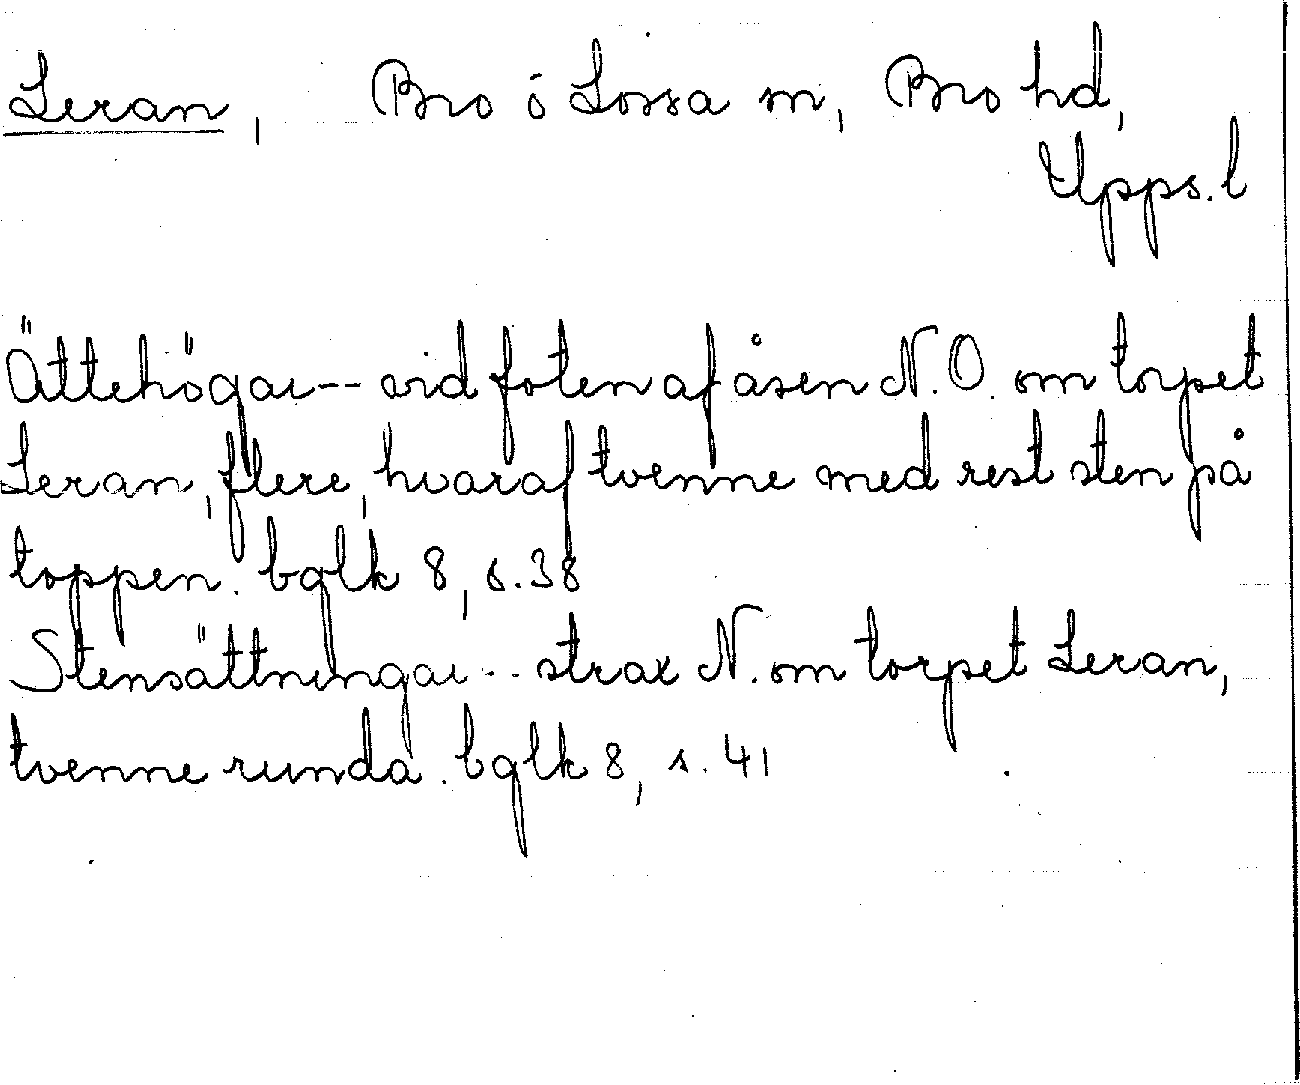 Leran, Bro o Lossa sn, Bro hd,
Upps. l
Ättehögar -- vid foten af åsen N.O. om torpet
Leran, flere, hvaraf tvenne med rest sten på
toppen. bglk 8, s. 38
Stensättningar -- strax N. om torpet Leran,
tvenne runda. bglk 8, s. 41